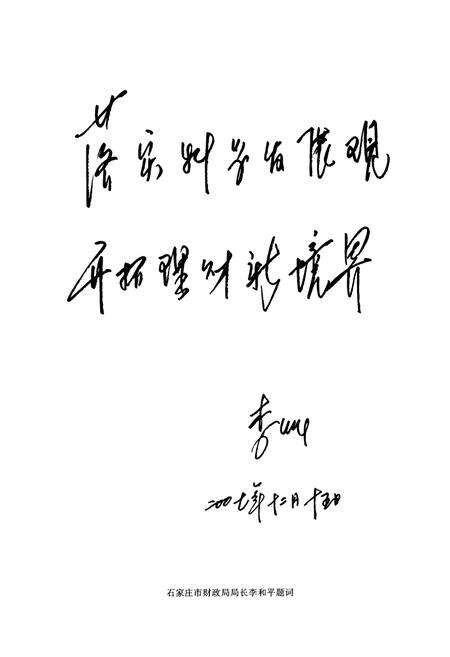 落实科学发展观
开拓理财新境界
李
二〇〇七年十二月十五日
石家庄市财政局局长李和平题词